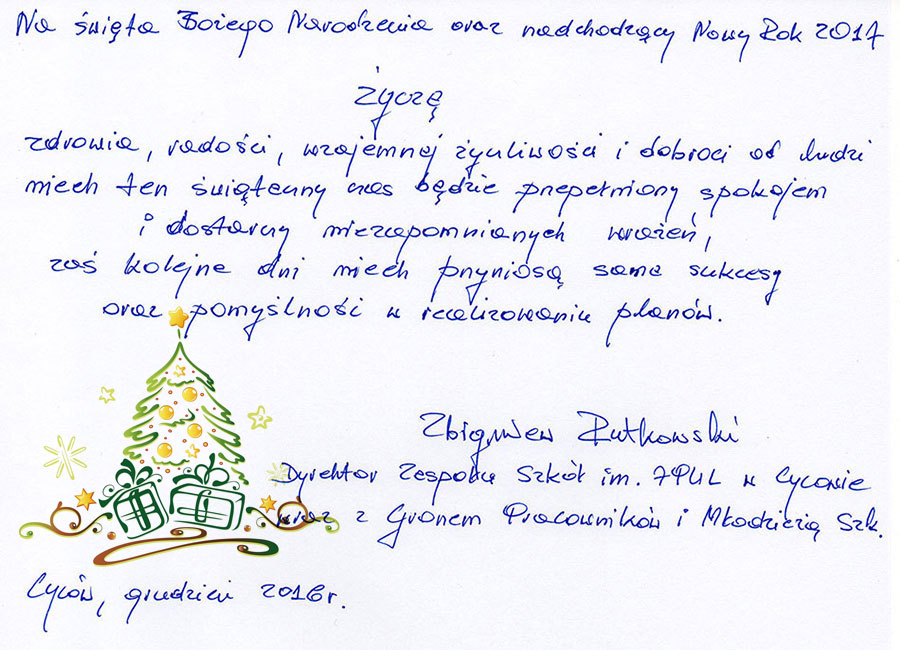 Na święta Bożego Narodzenia oraz nadchodzący Nowy Rok 2017
Życzę
zdrowia, radości, wzajemnej życzliwości i dobroci od ludzi
niech ten świąteczny czas będzie przepełniony spokojem
i dostarczy niezapomnianych wrażeń,
zaś kolejne dni niech przyniosą same sukcesy
oraz pomyślności w realizowaniu planów.
Zbigniew Rutkowski
Dyrektor Zespołu Szkół im. 7PUL w Cycowie
wraz z Gronem Pracowników i Młodzieżą Szk.
Cyców, grudzień 2016r.